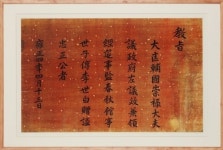 教旨
大匡輔國崇祿大夫
議政府左議政兼領
經筵事監春秋館事
世子傅李世白贈諡
忠正公者
雍正四年四月十三日